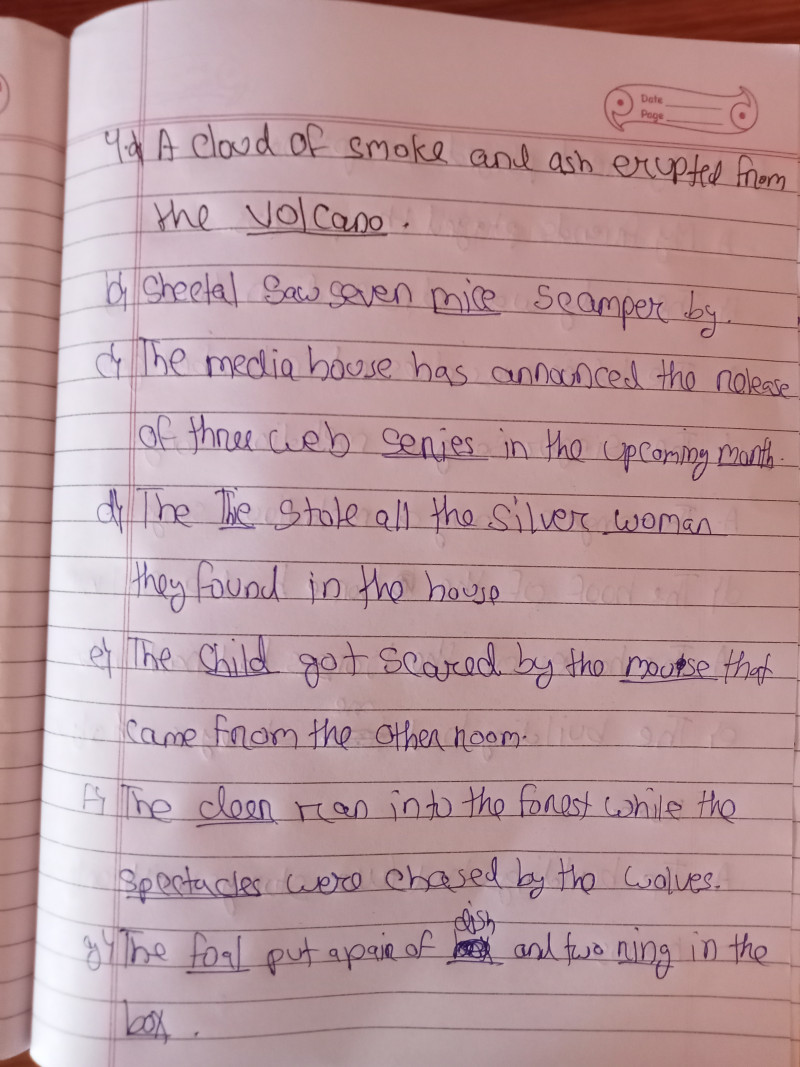 Date
Page
4.a) A cloud of smoke and ash erupted from
the volcano.
b) Sheetal saw seven mice scamper by.
c) The media house has annanced the release
of three web series in the upcoming month.
d) The Tie stole all the silver woman
they found in the house
e) The child got scared by the mouse that
came from the other room.
F) The deer ran into the forest while the
spectacles were chased by the wolves.
dish
g) The foal put a pair of and two ring in the
box.